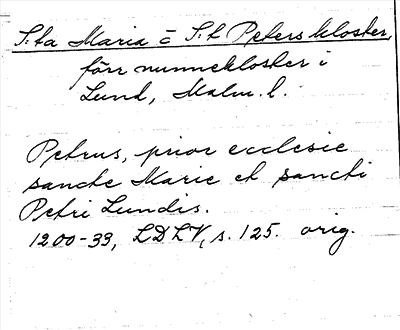 S:ta Maria o S:t Peters kloster,
förr nunnekloster i
Lund, Malm. l.
Petrus, prior ecclesie
sancte Marie et sancti
Petri Lundis.
1200-33, LDLV, s. 125. orig.